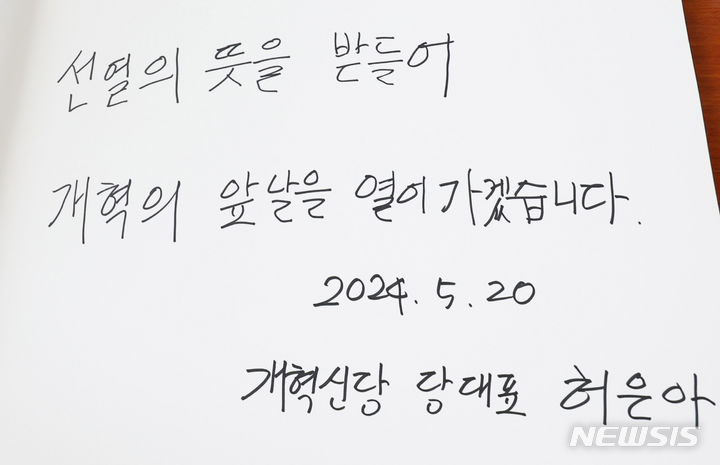 선열의 뜻을 받들어
개혁의 앞날을 열어가겠습니다.
2024. 5. 20
개혁신당 당대표 허은아
NEWSIS